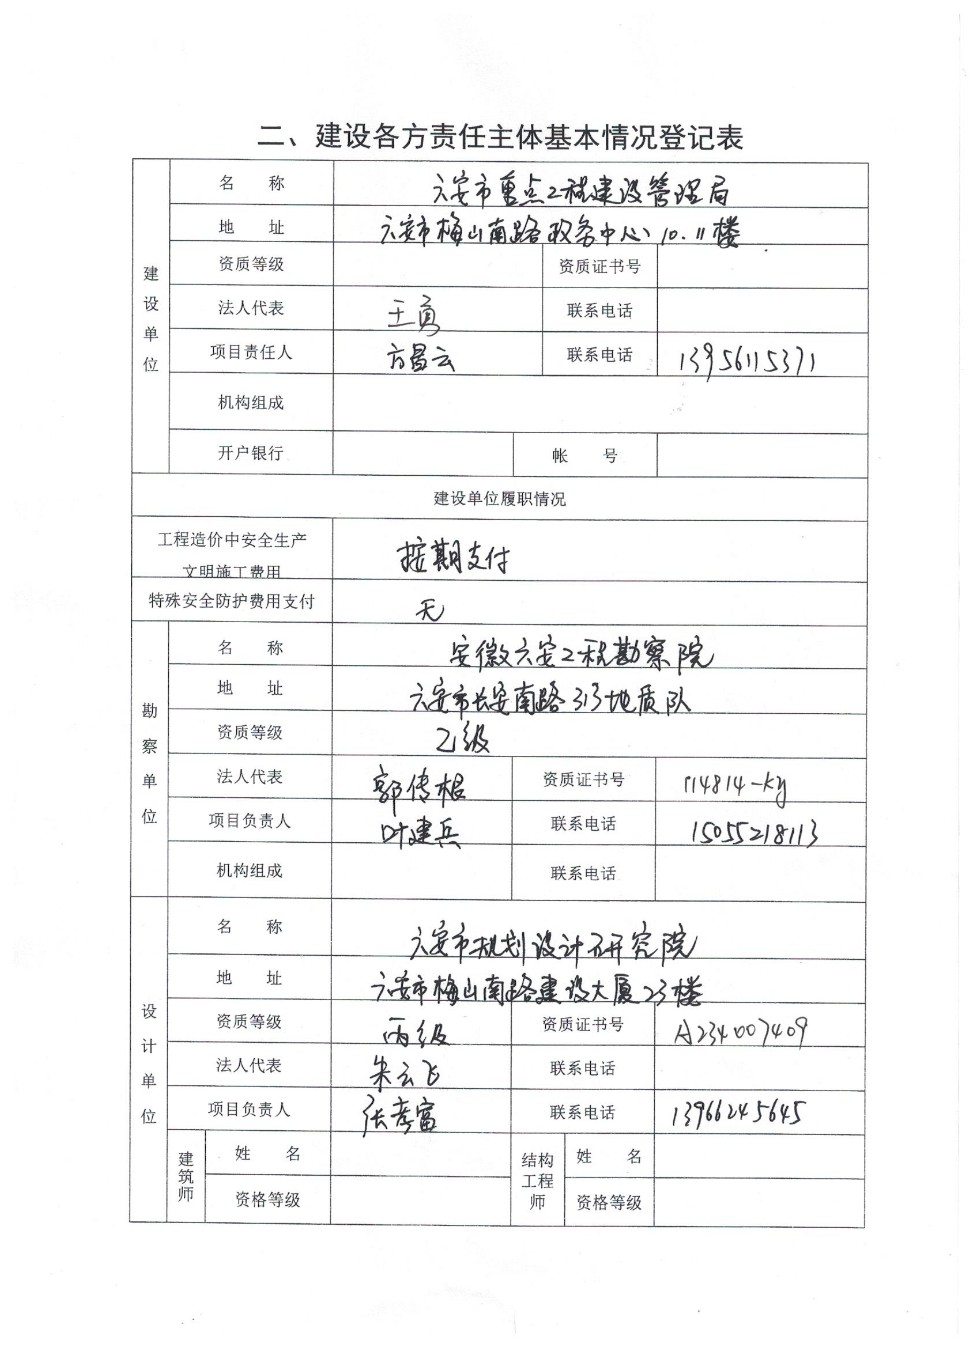 二、建设各方责任主体基本情况登记表
建设单位
名 称 六安市重点工程建设管理局
地 址 六安市梅山南路政务中心10.11楼
资质等级 资质证书号
法人代表 王勇 联系电话
项目责任人 方昌云 联系电话 13956115371
机构组成
开户银行 帐 号
建设单位履职情况
工程造价中安全生产
文明施工费用 按期支付
特殊安全防护费用支付 无
勘察单位
名 称 安徽六安工程勘察院
地 址 六安市长安南路313地质队
资质等级 乙级
法人代表 郭传根 资质证书号 114814-ky
项目负责人 叶建兵 联系电话 15055218113
机构组成 联系电话
设计单位
名 称 六安市规划设计研究院
地 址 六安市梅山南路建设大厦23楼
资质等级 丙级 资质证书号 A234007409
法人代表 朱云飞 联系电话
项目负责人 张孝富 联系电话 13966245645
建筑师 姓 名 结构工程师 姓 名
资格等级 资格等级